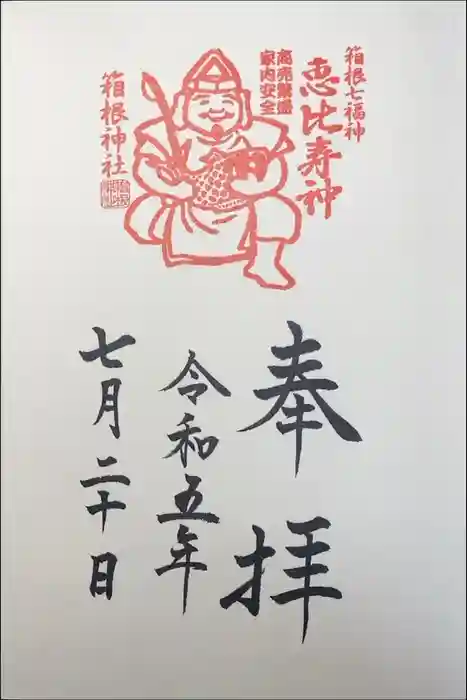 箱根七福神
恵比寿神
商売繁盛
家内安全
箱根神社
奉拝
令和五年
七月二十日